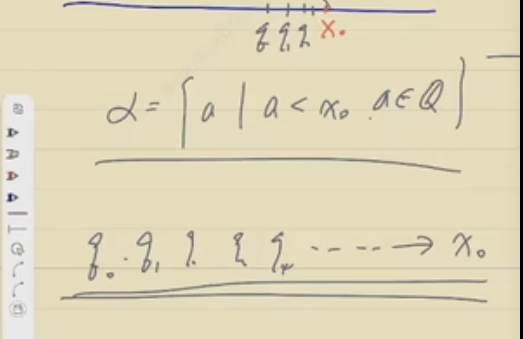 q q, q x₀
α = { a | a < x₀ . a ∈ Q }
q₀ . q₁ q q q₄ ---- → x₀